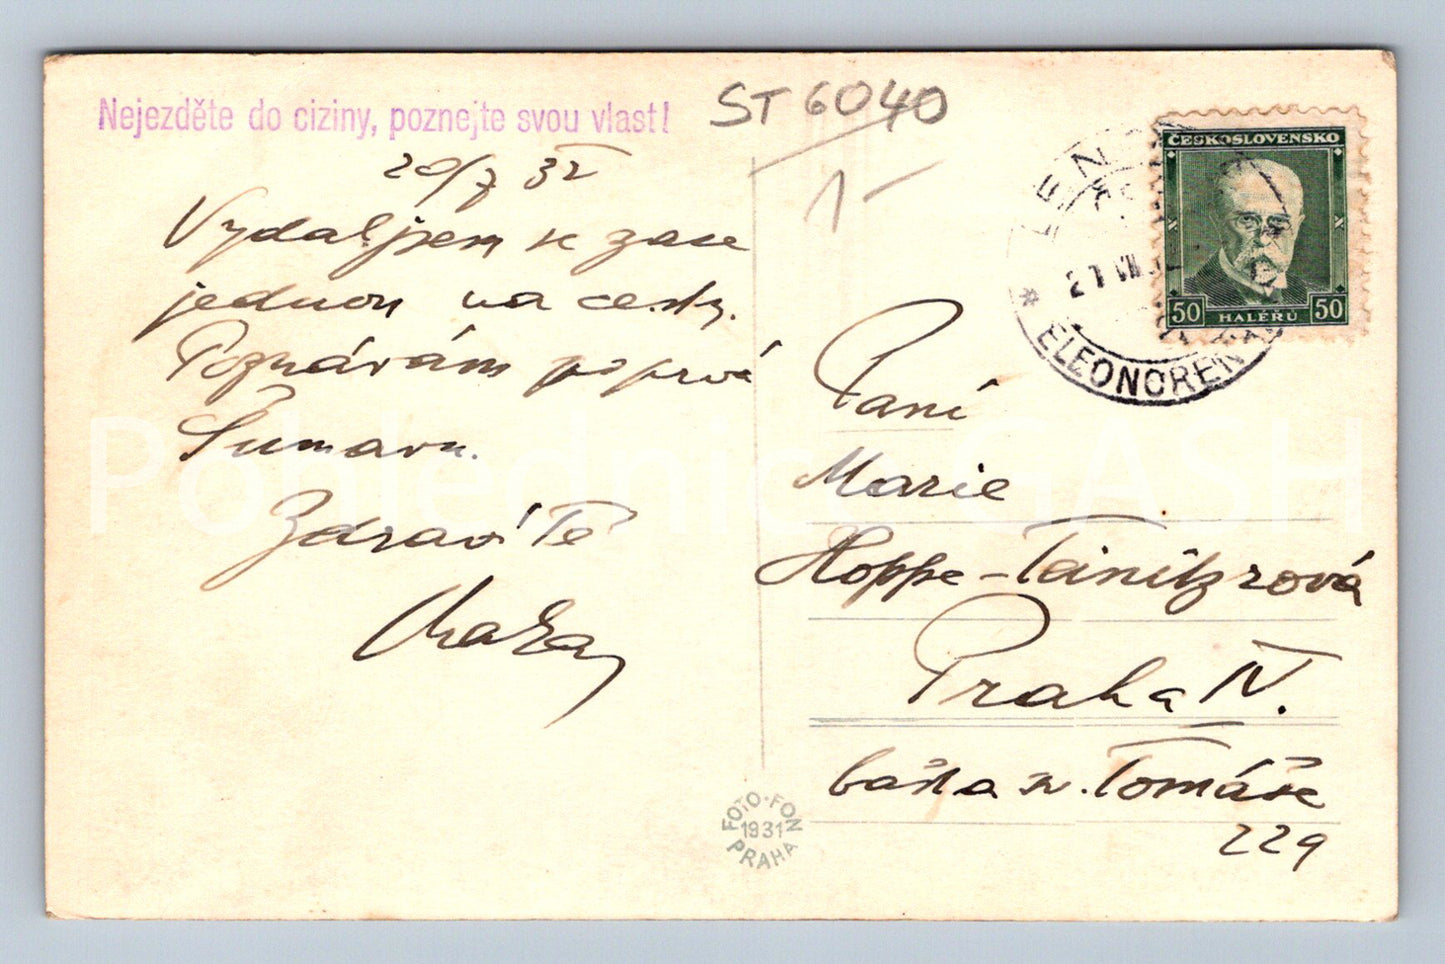 Nejezděte do ciziny, poznejte svou vlast!
ST 6040
1-
20/7 32
Vydal jsem se zase
jednou na cesty.
Poznávám poprvé
Šumavu.
Zdraví Tě
ČESKOSLOVENSKO
50 HALÉŘŮ 50
LEN
21 VII
* ELEONOREN
Paní
Marie
Hoppe-Teinitzrová
Praha IV.
bašta sv. Tomáše
229
FOTO-FON
1931
PRAHA
Pohlednice GASH